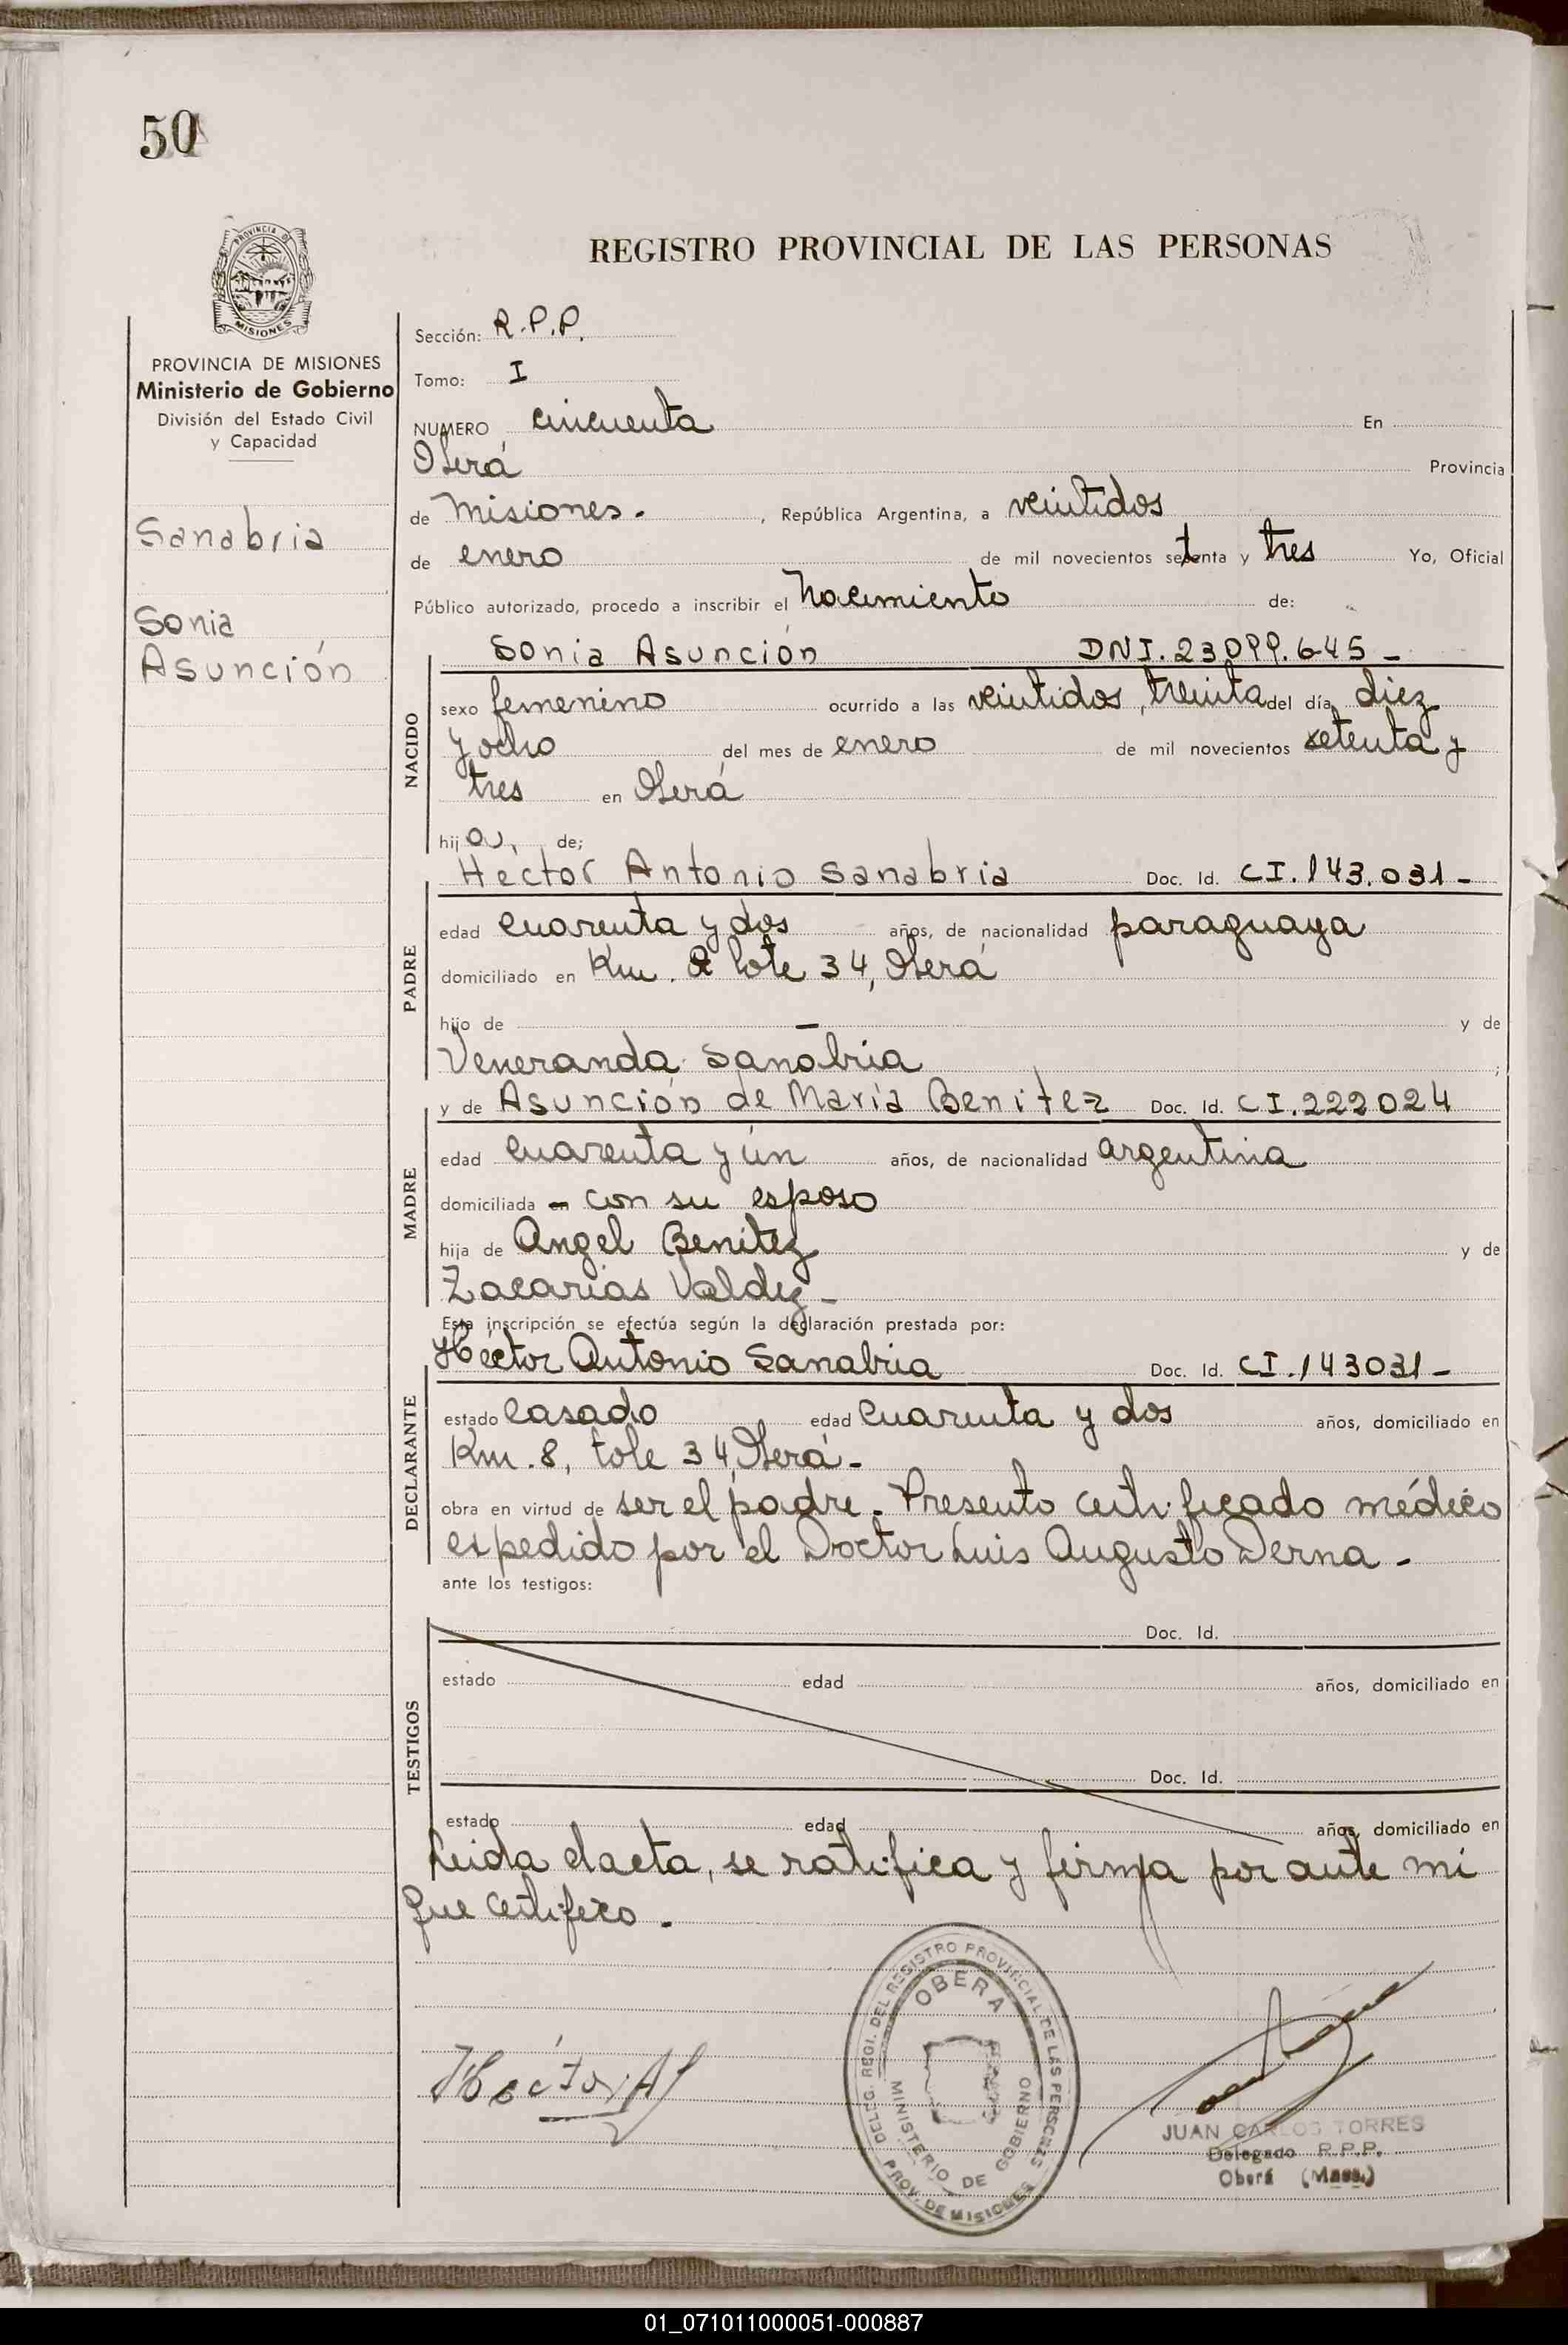 50
REGISTRO PROVINCIAL DE LAS PERSONAS
PROVINCIA DE MISIONES
Ministerio de Gobierno
División del Estado Civil
y Capacidad
Sanabria
Sonia
Asunción
Sección: R.P.P.
Tomo: I
NUMERO cincuenta En
Oberá Provincia
de Misiones. , República Argentina, a veintidos
de enero de mil novecientos setenta y tres Yo, Oficial
Público autorizado, procedo a inscribir el Nacimiento de:
NACIDO
Sonia Asunción DNI. 23099.645 -
sexo femenino ocurrido a las veintidos, treinta del día diez
y ocho del mes de enero de mil novecientos setenta y
tres en Oberá
hija, de;
PADRE
Héctor Antonio Sanabria Doc. Id. CI. 143.031 -
edad cuarenta y dos años, de nacionalidad paraguaya
domiciliado en Km. 8 lote 34, Oberá
hijo de — y de
Veneranda Sanabria ;
MADRE
y de Asunción de María Benitez Doc. Id. CI. 222024
edad cuarenta y ún años, de nacionalidad argentina
domiciliada - con su esposo
hija de Angel Benitez y de
Zacarias Valdez -
Esta inscripción se efectúa según la declaración prestada por:
DECLARANTE
Héctor Antonio Sanabria Doc. Id. CI. 143031 -
estado casado edad cuarenta y dos años, domiciliado en
Km. 8, lote 34, Oberá -
obra en virtud de ser el padre. Presento certificado médico
expedido por el Doctor Luis Augusto Derna -
ante los testigos:
TESTIGOS
Doc. Id.
estado edad años, domiciliado en
Doc. Id.
estado edad años, domiciliado en
Leida el acta, se ratifica y firma por ante mi
que certifico.
Héctor A S
DELEG. REGI. DEL REGISTRO PROVINCIAL DE LAS PERSONAS
OBERA
MINISTERIO DE GOBIERNO
PROV. DE MISIONES
JUAN CARLOS TORRES
Delegado R.P.P.
Oberá (Mnes.)
01_071011000051-000887